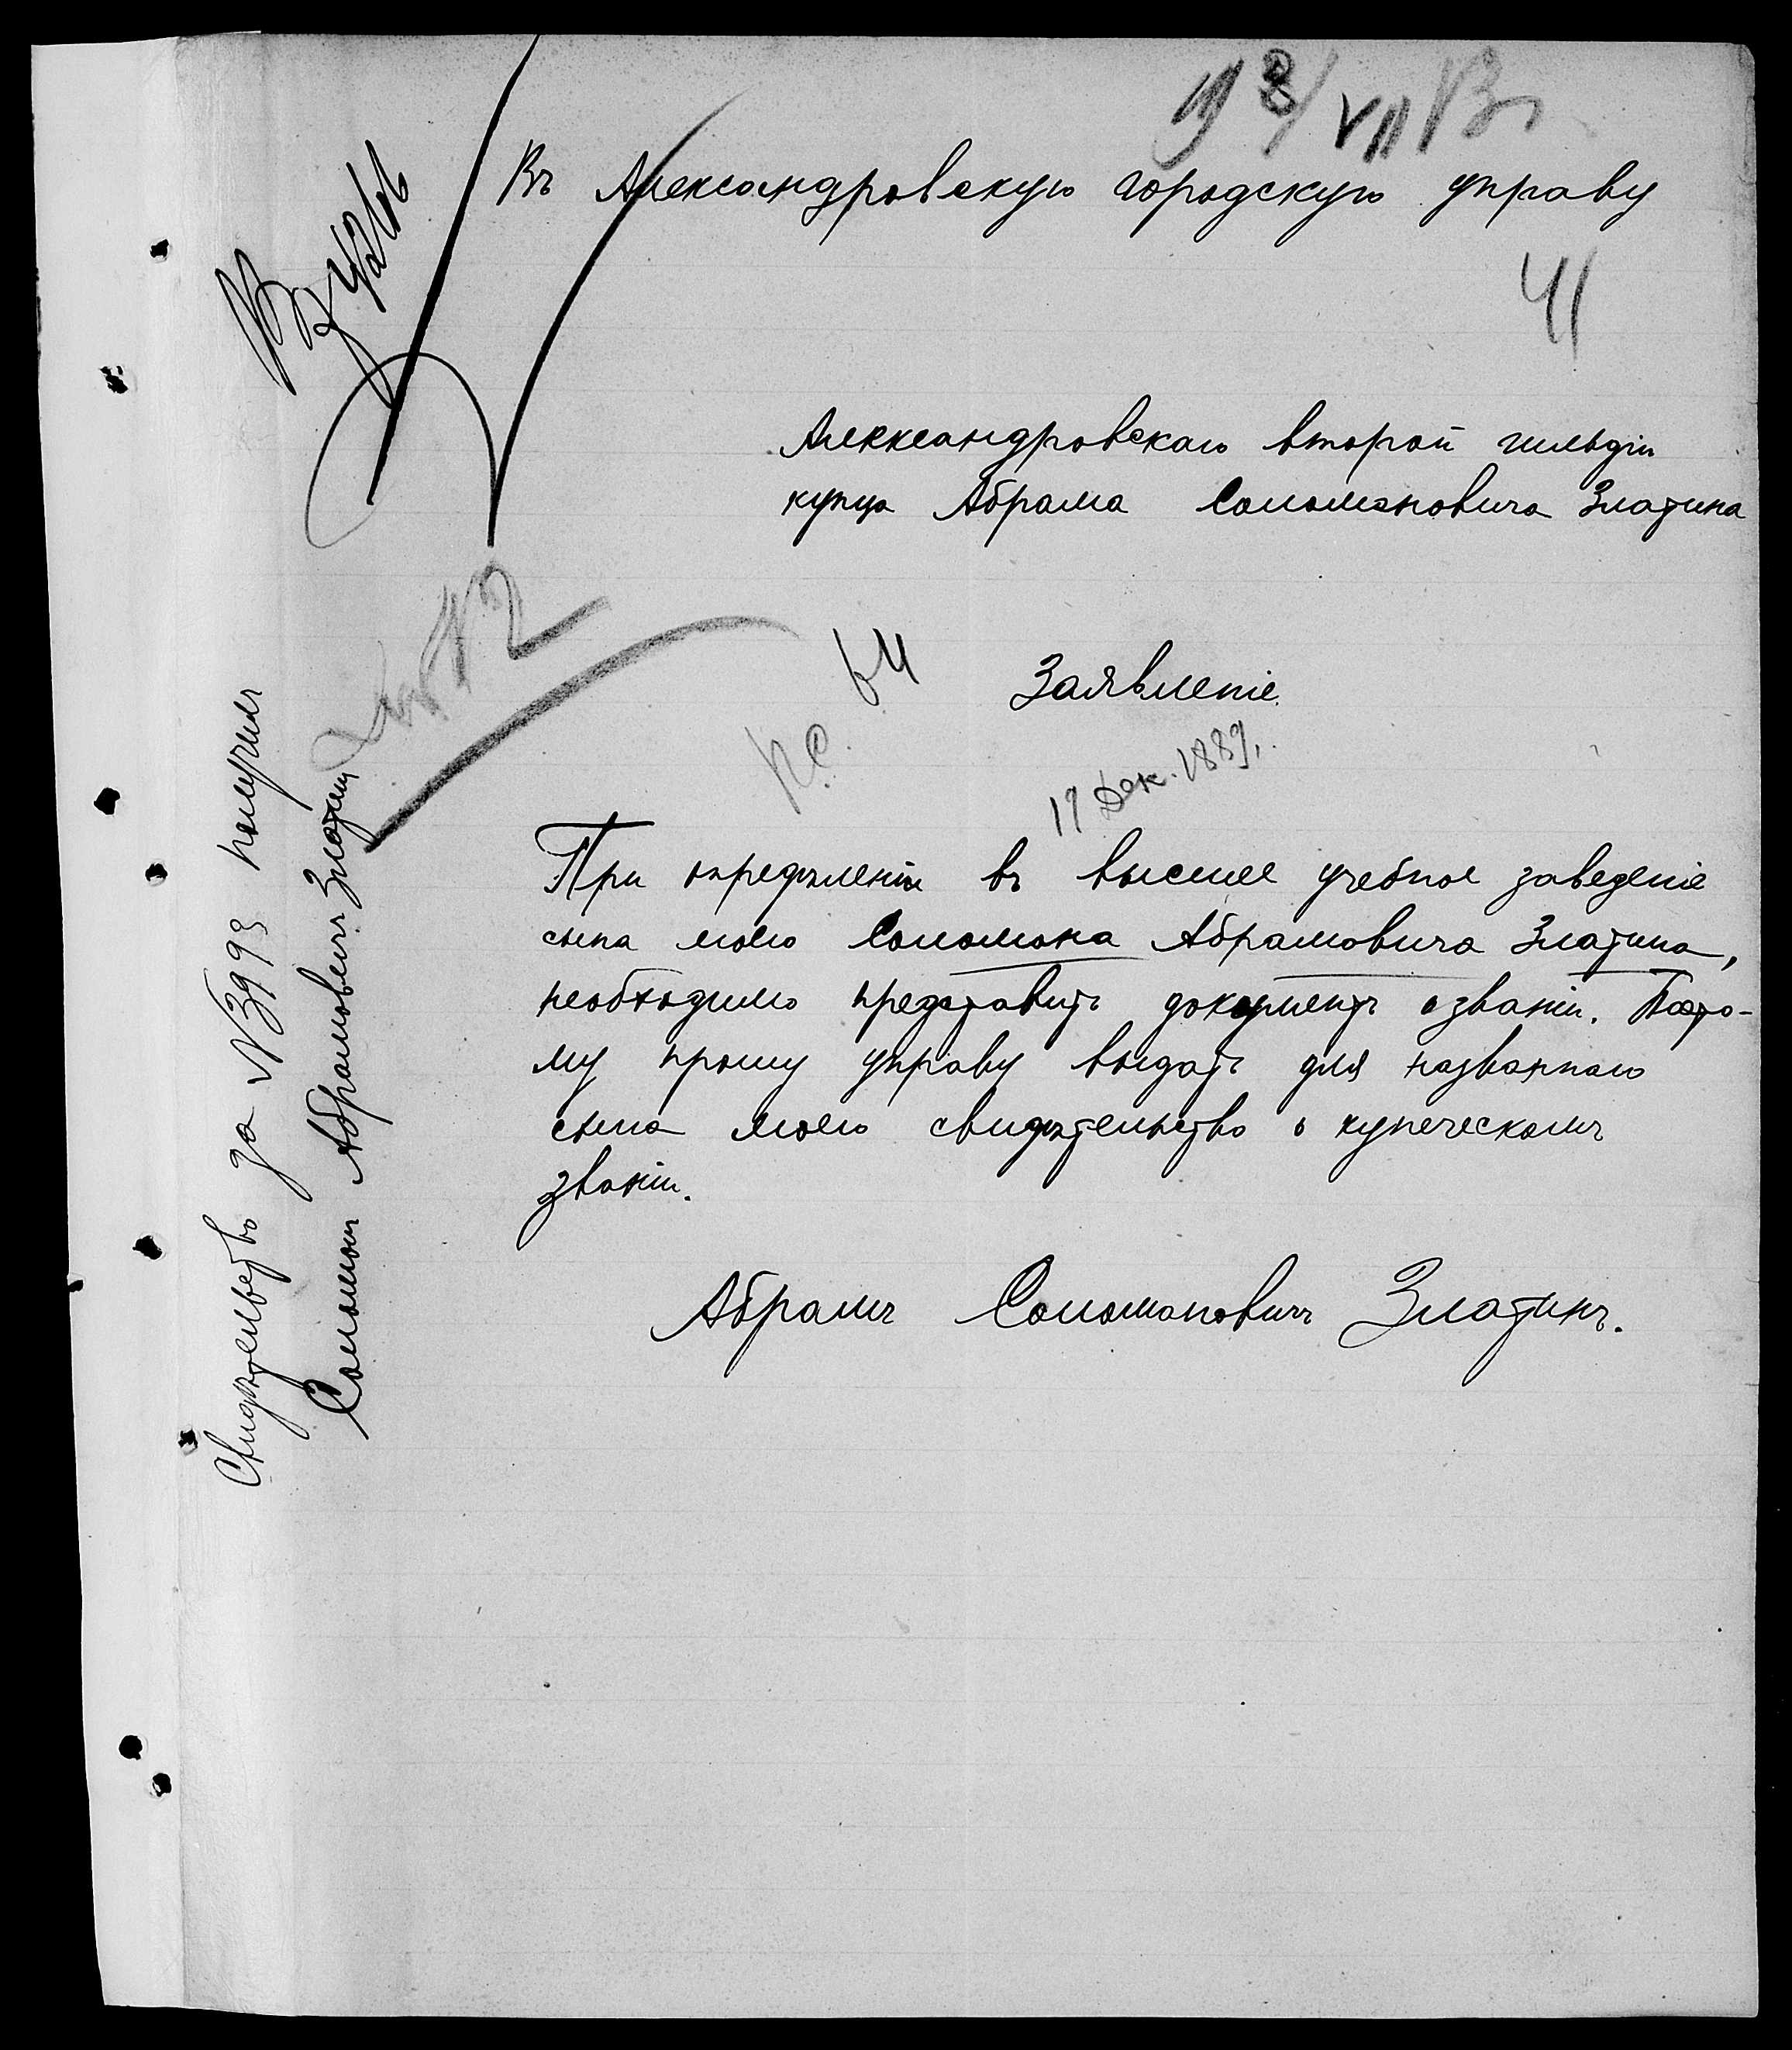 19 3/VII 13 г.
Въ Александровскую городскую управу
41
Алекксандровскаго второй гильдіи
купца Абрама Соломоновича Златина
64
Заявленіе.
17 Дек. 1889,
При опредѣленіи въ высшее учебное заведеніе
сына моего Соломона Абрамовича Златина,
необходимо представить документъ о званіи. Поэто-
му прошу управу выдать для названнаго
сына моего свидѣтельство о купеческомъ
званіи.
Абрамъ Соломоновичъ Златинъ.
Свидѣтельство за №3993 получилъ
Соломонъ Абрамовичъ Златинъ